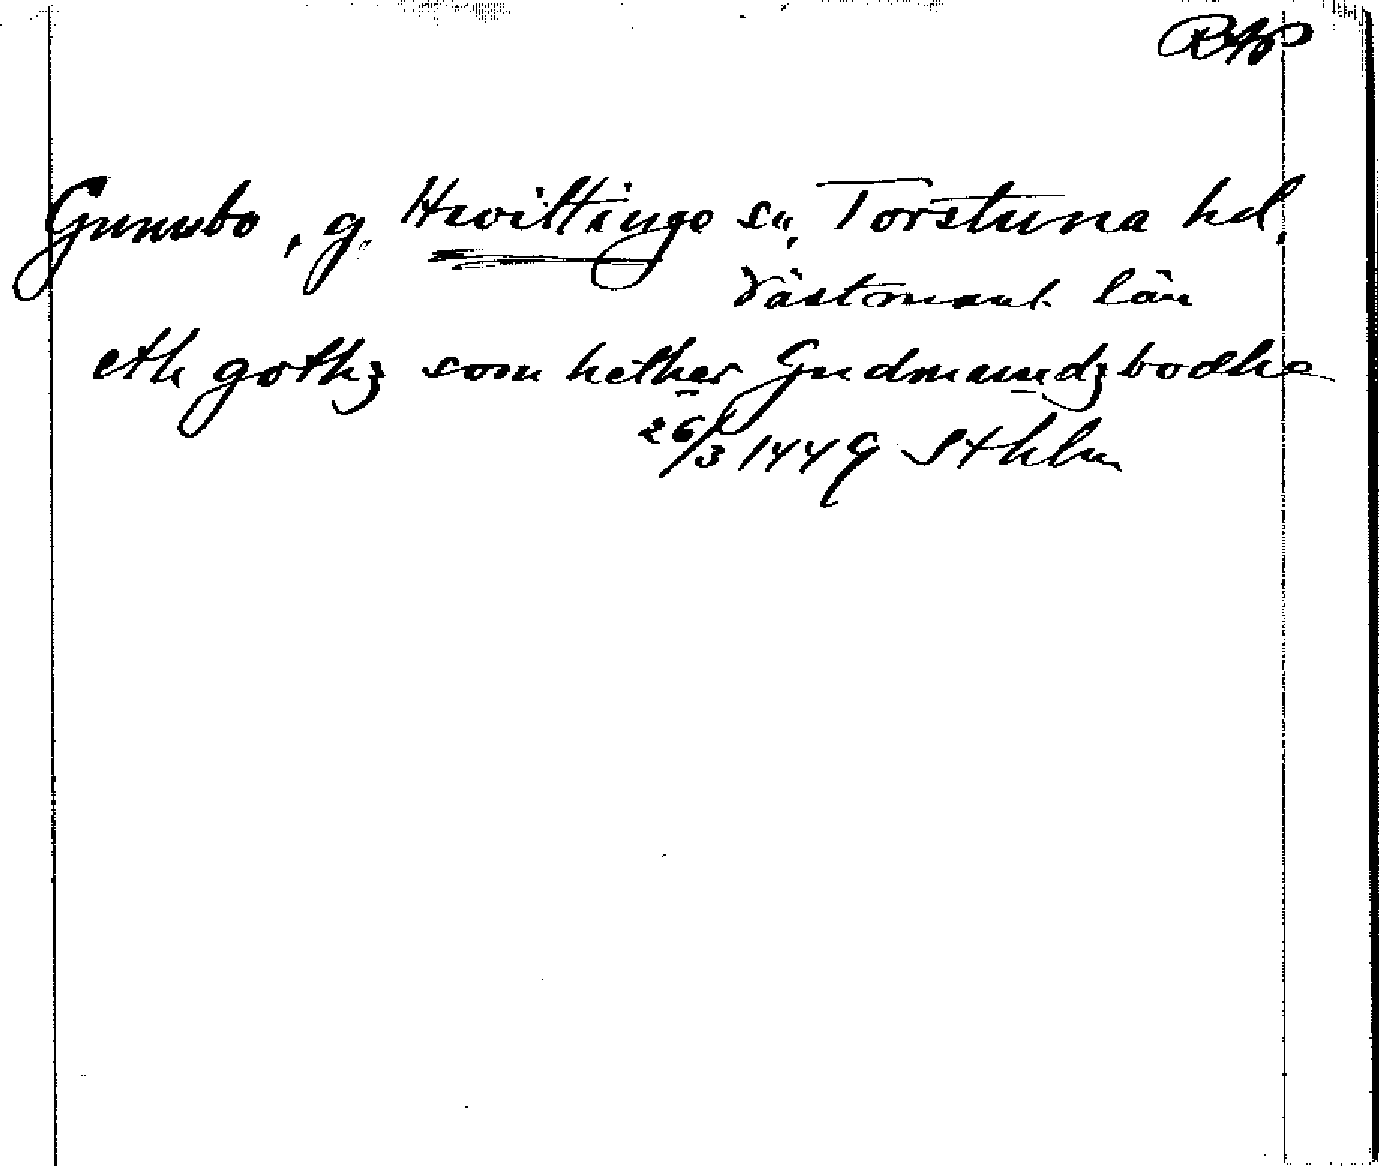 Gunnsbo, g. Hwittinge sn, Torstuna hd.
Västmanl. län
eth gothz som hether Gudmundzbodha
26/3 1449 Sthlm